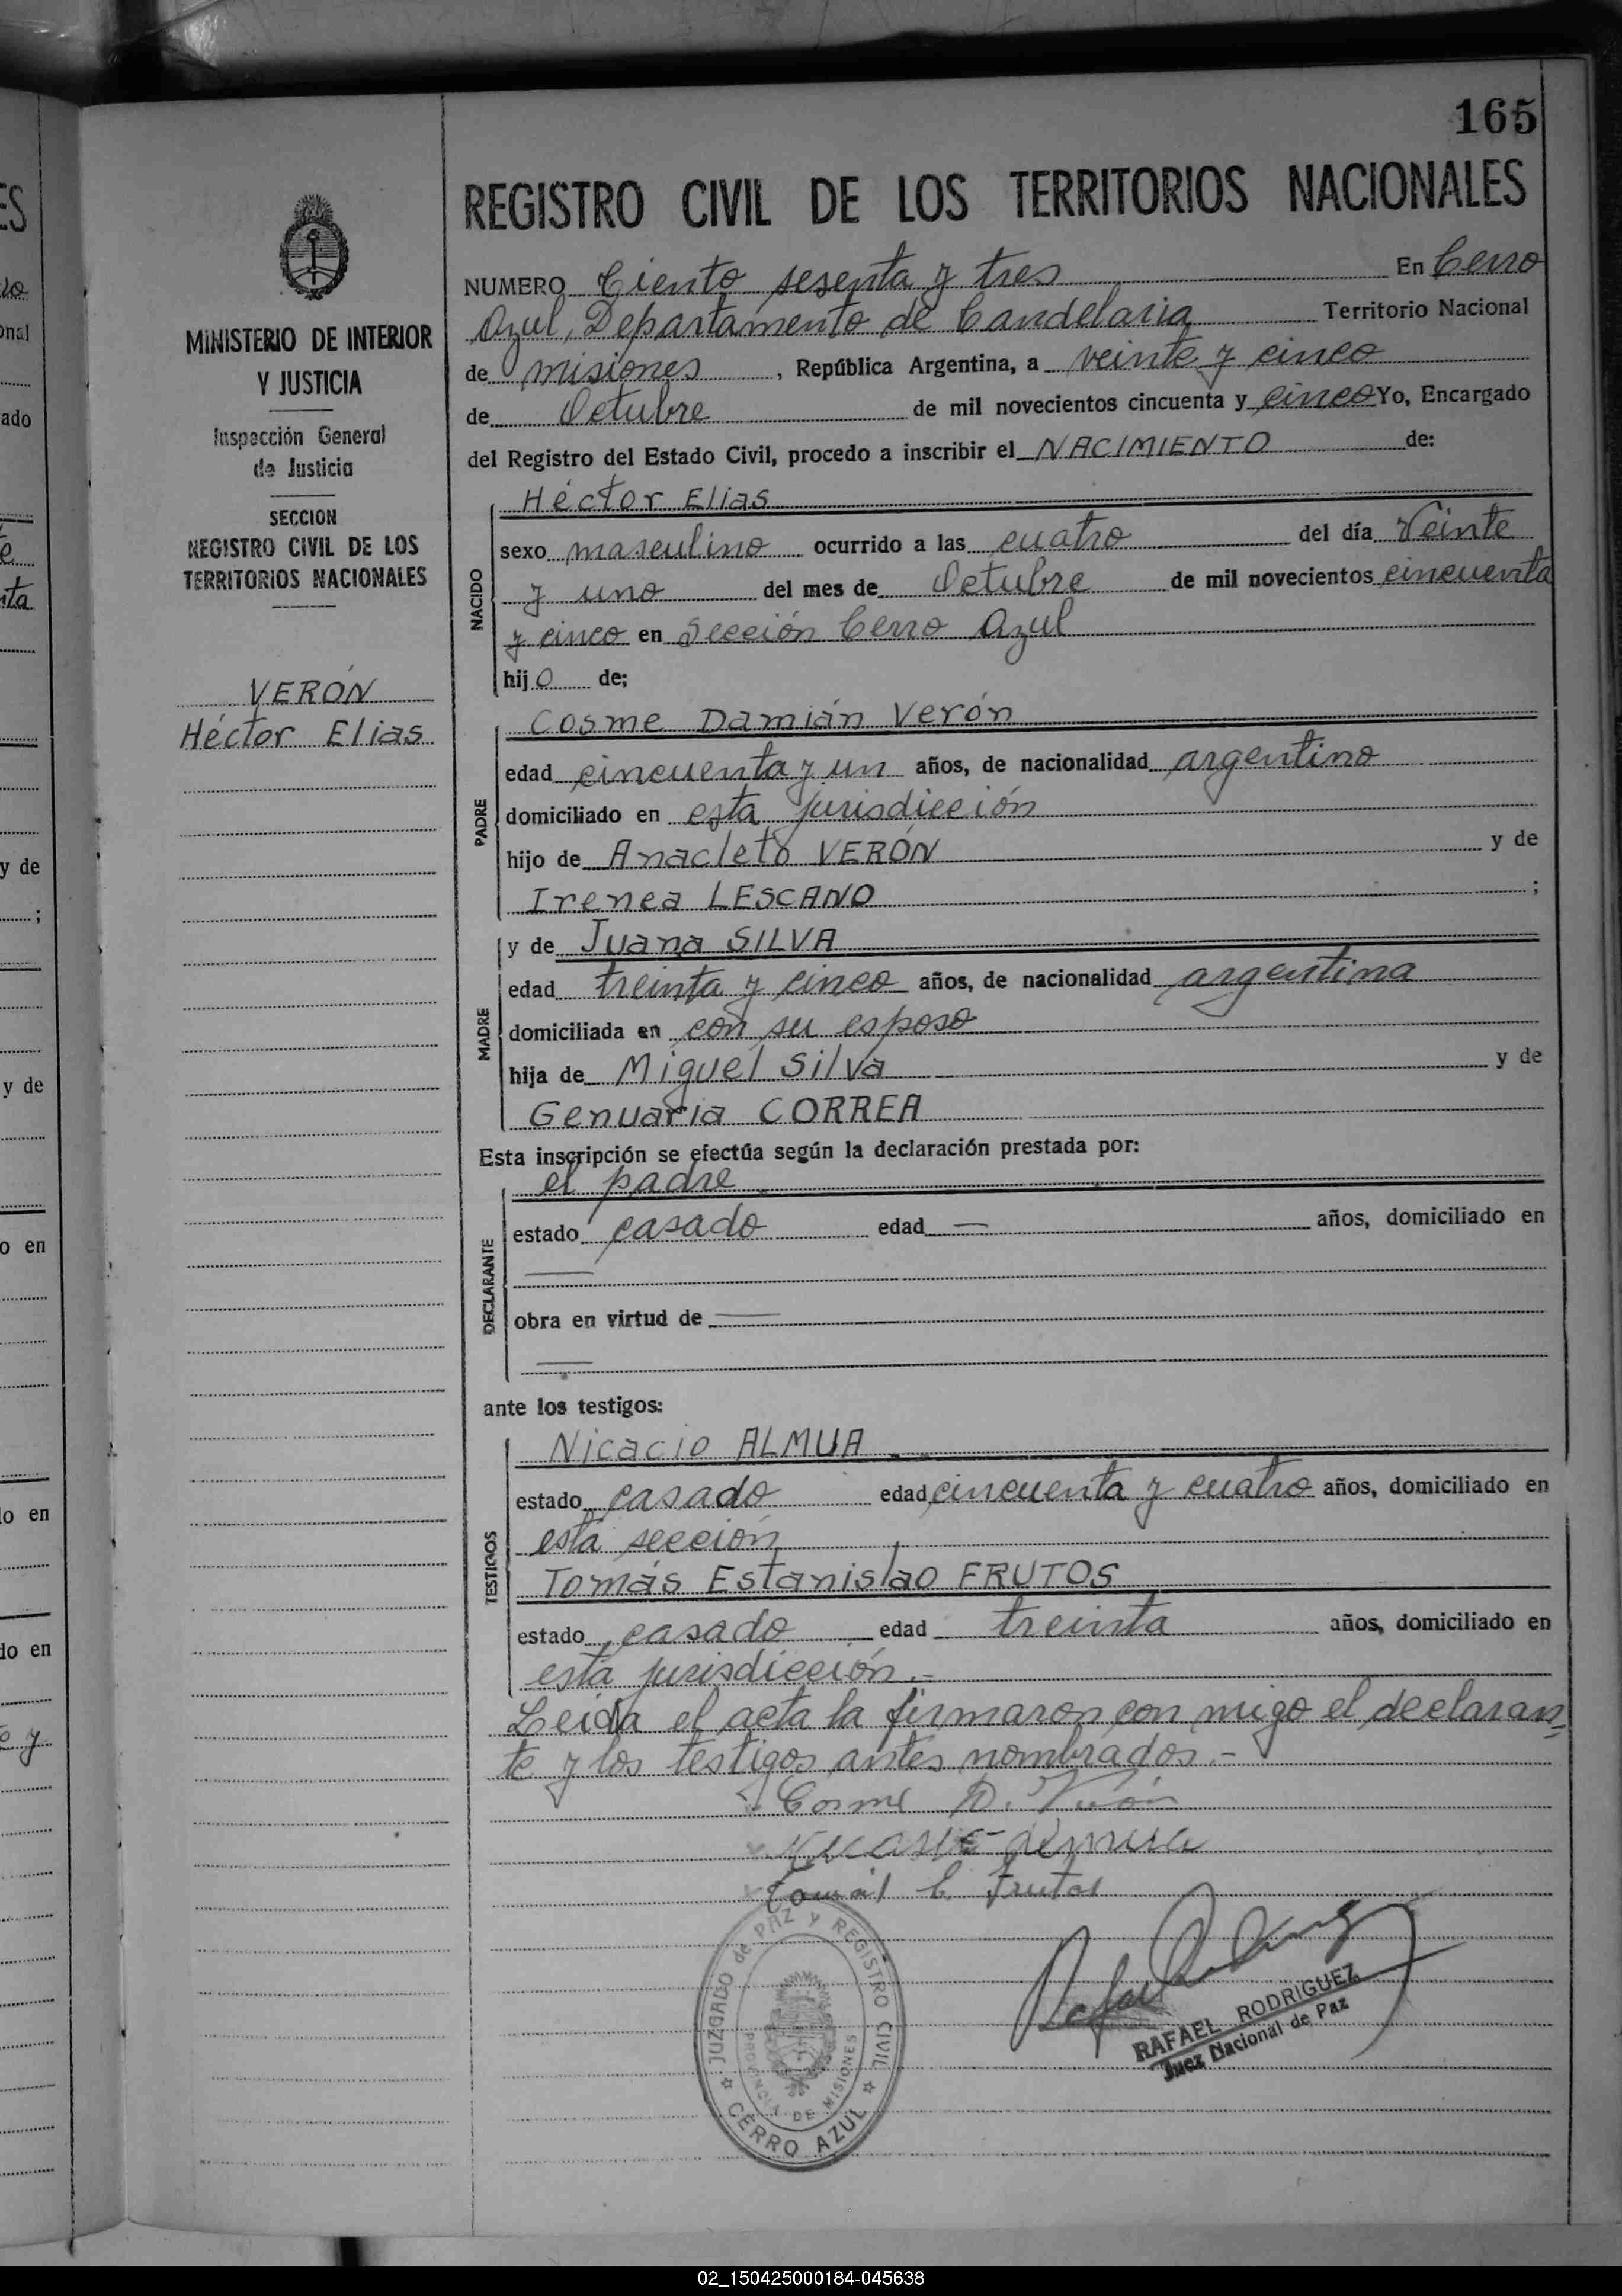 165
REGISTRO CIVIL DE LOS TERRITORIOS NACIONALES
MINISTERIO DE INTERIOR
Y JUSTICIA
Inspección General
de Justicia
SECCION
REGISTRO CIVIL DE LOS
TERRITORIOS NACIONALES
VERÓN
Héctor Elias
NUMERO Ciento sesenta y tres En Cerro
Azul, Departamento de Candelaria Territorio Nacional
de misiones, República Argentina, a veinte y cinco
de Octubre de mil novecientos cincuenta y cinco Yo, Encargado
del Registro del Estado Civil, procedo a inscribir el NACIMIENTO de:
NACIDO
Héctor Elias
sexo masculino ocurrido a las cuatro del día Veinte
y uno del mes de Octubre de mil novecientos cincuenta
y cinco en Sección Cerro Azul
hijo de;
PADRE
Cosme Damián Verón
edad cincuenta y un años, de nacionalidad argentino
domiciliado en esta jurisdicción
hijo de Anacleto VERÓN y de
Irenea LESCANO ;
MADRE
y de Juana SILVA
edad treinta y cinco años, de nacionalidad argentina
domiciliada en con su esposo
hija de Miguel Silva y de
Genuaria CORREA
Esta inscripción se efectúa según la declaración prestada por:
DECLARANTE
el padre
estado casado edad — años, domiciliado en
—
obra en virtud de —
—
ante los testigos:
TESTIGOS
Nicacio ALMUA
estado casado edad cincuenta y cuatro años, domiciliado en
esta sección
Tomás Estanislao FRUTOS
estado casado edad treinta años, domiciliado en
esta jurisdicción.-
Leida el acta la firmaron con migo el declaran=
te y los testigos antes nombrados.-
Cosme D. Verón
Nicacio Almua
Tomás E. Frutos
JUZGADO de PAZ Y REGISTRO CIVIL
PROVINCIA DE MISIONES
CERRO AZUL
RAFAEL RODRIGUEZ
Juez Nacional de Paz
02_150425000184-045638